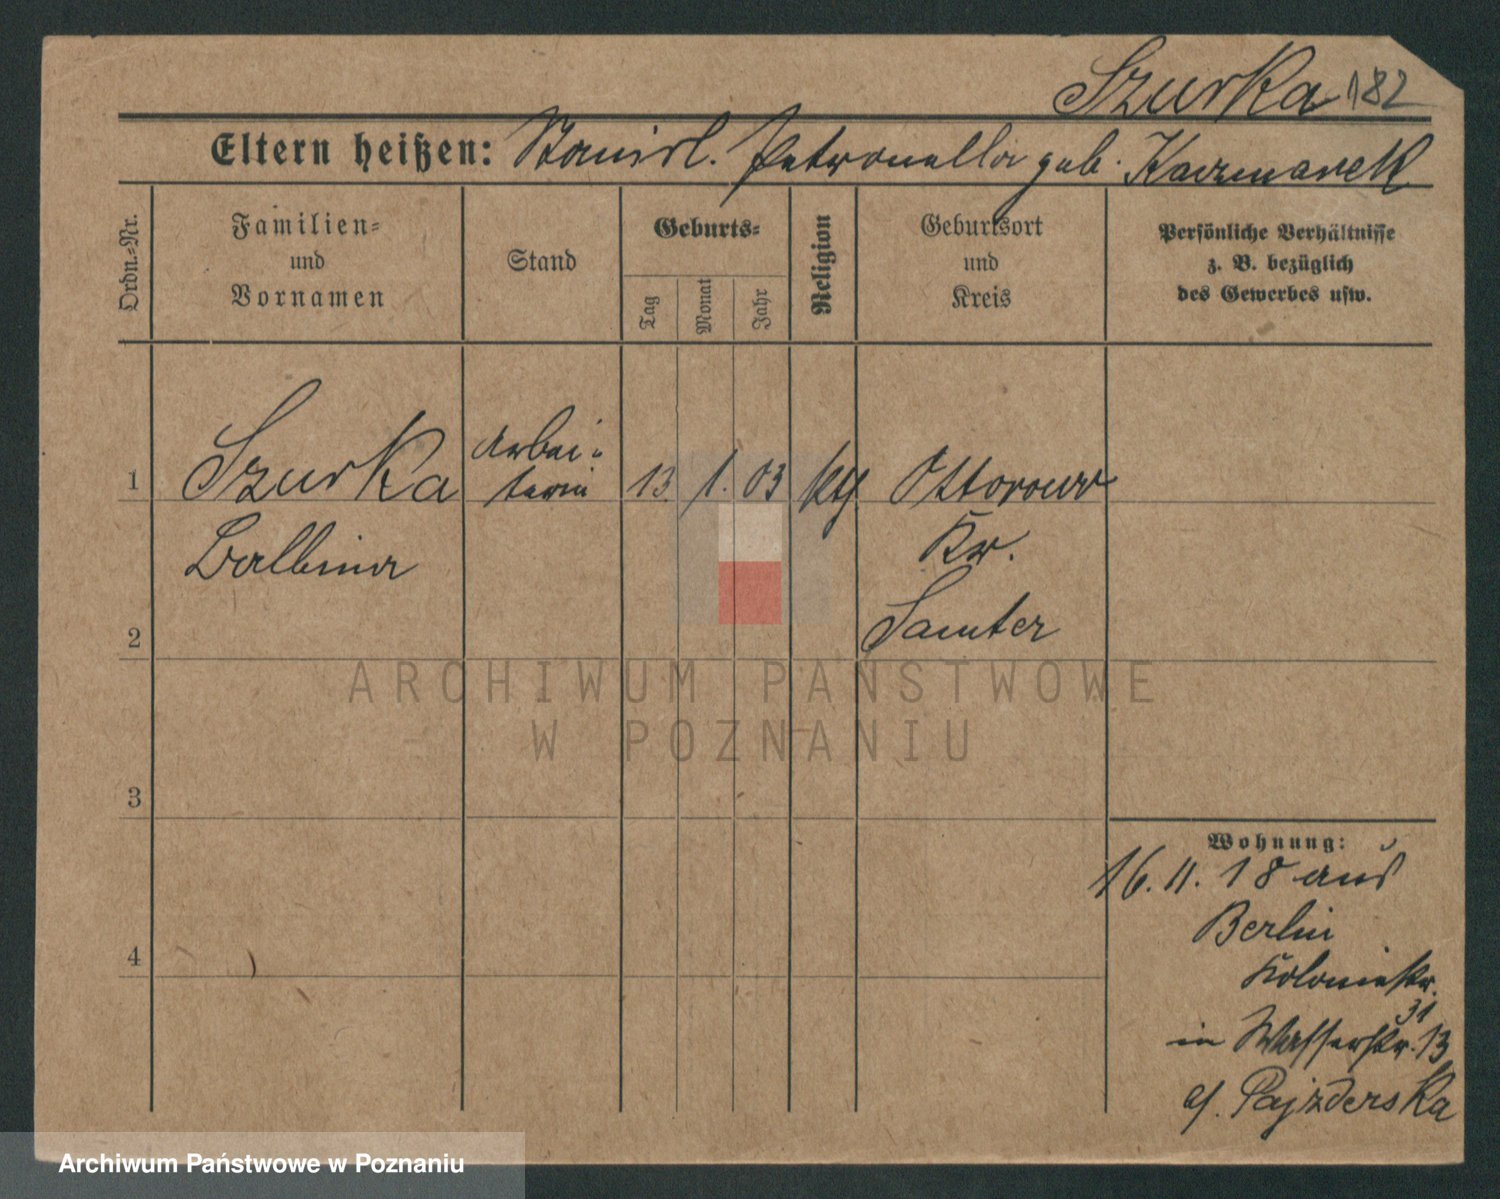 Szurka 182
Eltern heißen: Stanisl. Petronella geb. Kaczmarek
Ordn.-Nr.
Familien-
und
Vornamen
Stand
Geburts-
Tag
Monat
Jahr
Religion
Geburtsort
und
Kreis
Persönliche Verhältnisse
z. B. bezüglich
des Gewerbes usw.
1 Szurka Arbei-
terin 13. 1. 03 Ottorowo
Balbina Kr.
2 Samter
ARCHIWUM PAŃSTWOWE
W POZNANIU
3
Wohnung:
16. 11. 18 aus
Berlin
4 Koloniestr.
31
in Wasserstr. 13
Pajzderska
Archiwum Państwowe w Poznaniu